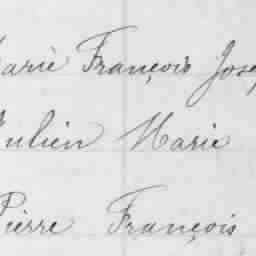 Marie François Jose
Julien Marie
Pierre François